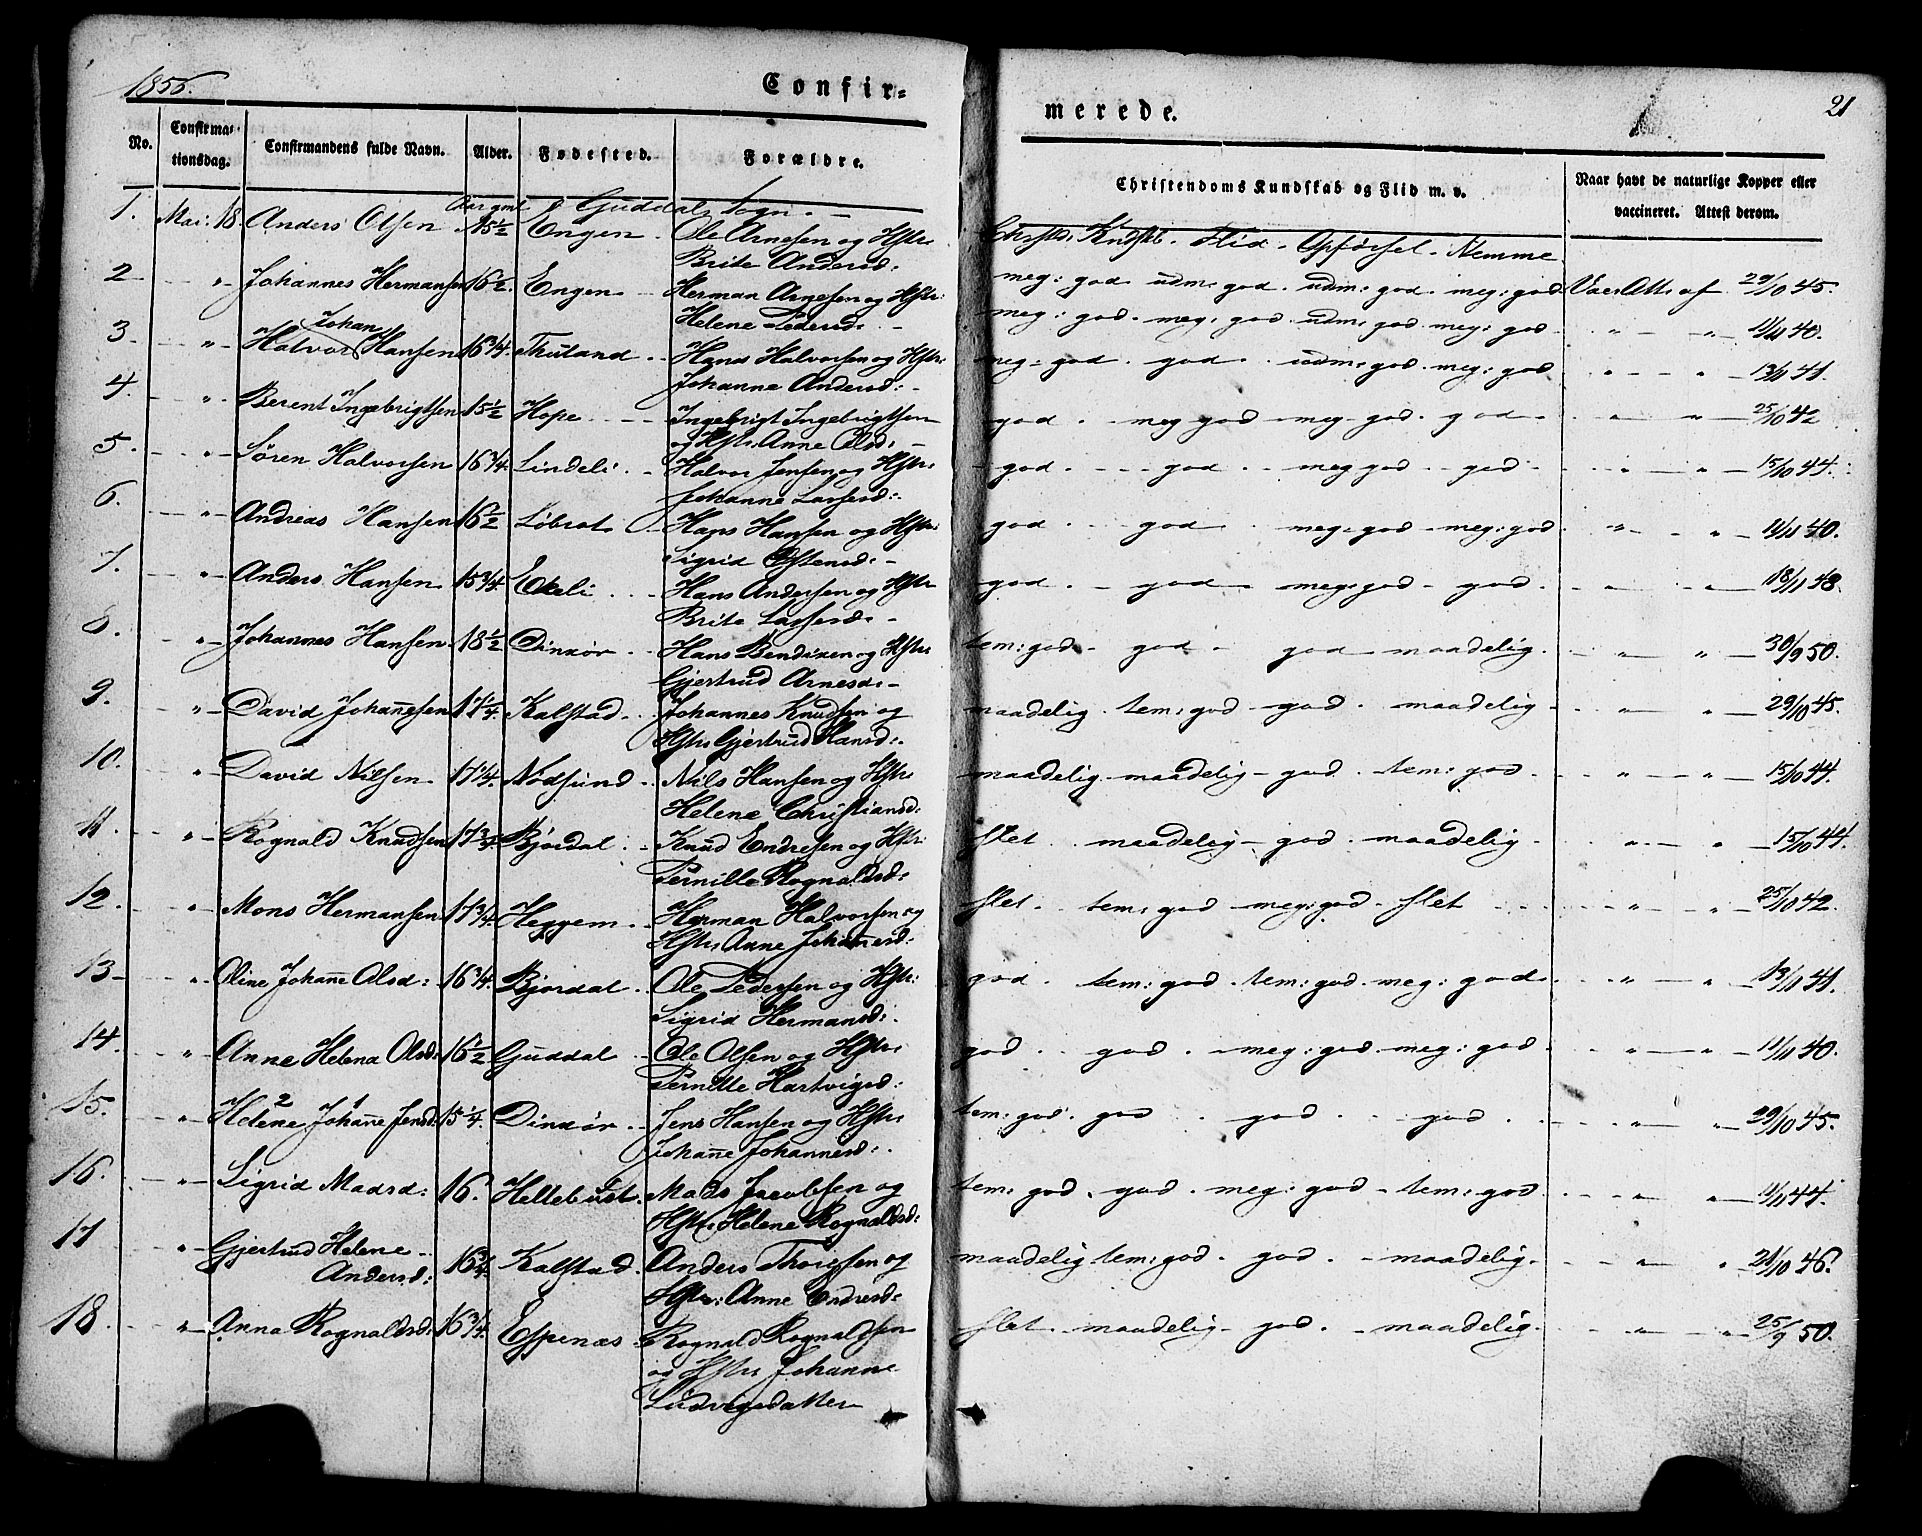 1856.
Confir-
merede.
21
No.
Confirma-
tionsdag.
Confirmandens fulde Navn.
Alder.
Fødested.
Forældre.
Christendoms Kundskab og Flid m. v.
Naar havt de naturlige Kopper eller
vaccineret. Attest derom.
Guddals Sogn. -
1. Mai: 18. Anders Olsen 15 1/2 Engen - Ole Arnesen og Hstr: Christd: Kndskb. Flid - Opførsel - Nemme
Brite Andersd:
meg: god udm: god. udm: god. meg: god Vacc: Att: af 29/10 45.
2 - " - Johannes Hermansen 16 1/2 Engen - Herman Arnesen og Hstr:
Helene Pedersd: -
meg: god. meg: god udm: god meg: god - " - " - 11/11 40.
3. - " - Halvor Johan Hansen 16 3/4 Thuland - Hans Halvorsen og Hstr:
Johanne Andersd: -
meg: god. god. udm: god. meg: god " - " - 13/11 41.
4. " Berent Ingebrigtsen 15 1/2 Hope - Ingebrigt Ingebrigtsen
og Hstr: Anne Olsd: -
god. meg god meg god. god " " 25/10 42
5. - " - Søren Halvorsen 16 3/4 Lindeli - Halvor Jensen og Hstr:
Johanne Lassesd:
god - god - meg god - god " - " - 15/10 44.
6. - " - Andreas Hansen 16 1/2 Løbrot - Hans Hansen og Hstr:
Sigrid Ostensd: -
god - god - meg: god - meg: god " - " - 11/11 40.
7. - " - Anders Hansen 15 3/4 Ekeli - Hans Andersen og Hstr
Brite Lassesd: -
god - god - meg: god - god - " - " - 18/11 48.
8. - " - Johannes Hansen 18 1/2 Dinxør - Hans Bendixen og Hstr:
Gjertrud Arnesd: -
tem: god - god - god - maadelig. - " - " - 30/9 50.
9. " - David Johañesen 17 1/4 Kalstad - Johannes Knudsen og
Hstr: Gjertrud Hansd:.
maadelig - tem: god - god. maadelig - " - " - 29/10 45.
10. " - David Nilsen 17 1/4 Nødsund - Nils Hansen og Hstr:
Helene Christiansd:
maadelig. maadelig - god. tem: god. - " - " - 15/10 44.
11. - " - Rognald Knudsen 17 3/4 Bjørdal - Knud Endresen og Hstr:
Pernille Rognaldsd:
slet. maadelig - god. maadelig - " - " - 15/10 44.
12. " - Mons Hermansen 17 3/4 Heggem - Herman Halvorsen og
Hstr: Anne Johañesd:
slet. tem: god - meg: god - slet - " - " - 25/10 42.
13 - " - Oline Johañe Olsd: 16 3/4 Bjørdal - Ole Pedersen og Hstr:
Sigrid Hermansd:.
god. tem: god. tem: god. meg: god - " - " - 13/11 41.
14. " - Anne Helena Olsd: 16 1/2 Guddal - Ole Olsen og Hstr:
Pernille Hartvigsd:
god. god. meg: god. meg: god. " - " - 11/11 40.
15. - " - Helene 2 Johañe 1 Jensd: 15 1/4 Dinxør - Jens Hansen og Hstr:
Johañe Johannesd:.
tem: god. god. god. god. " - " - 29/10 45.
16. " - Sigrid Madsd: 16. Hellebust. Mads Jacobsen og
Hstr: Helene Rognaldsd:
tem: god. god. meg: god - tem: god - " - " - 11/11 44.
17 " - Gjertrud Helene 16 3/4 Kalstad. Anders Thoresen og
Andersd: Hstr: Anne Endresd:
maadelig tem: god. god. - maadelig. " - " - 21/10 46.
18. " - Anna Rognaldsd: 16 3/4 Espenæs Rognald Rognaldsen
og Hstr: Johanne
Ludvigsdatter
slet - maadelig - god. - maadelig. - " - " - 25/9 50.